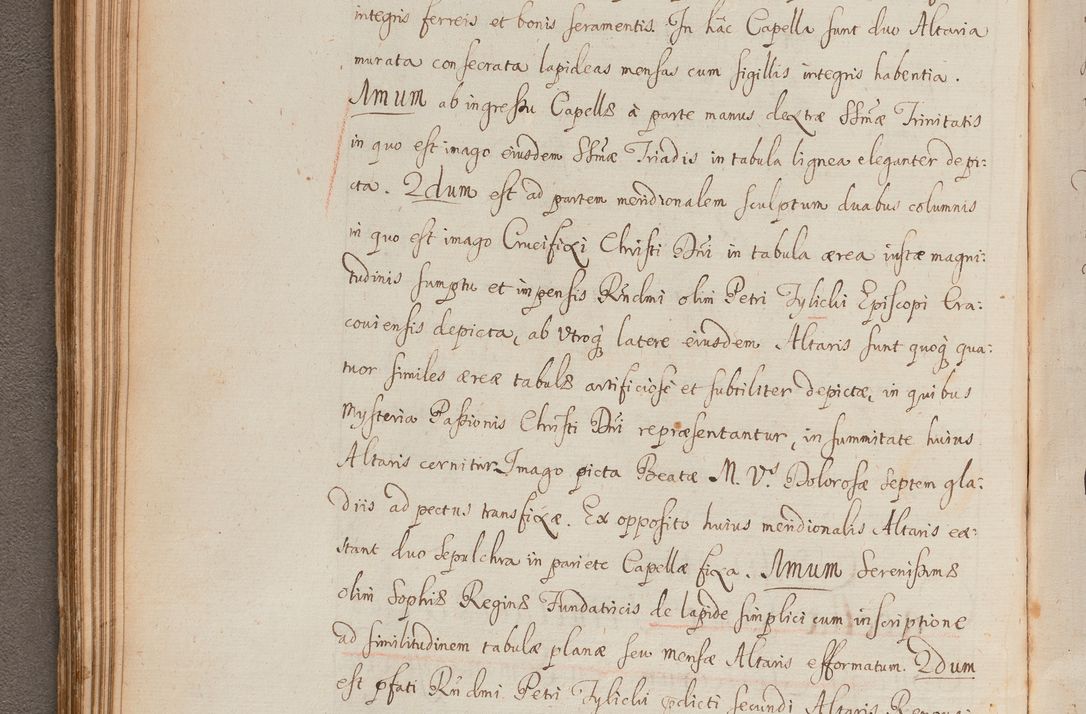 integris ferreis et bonis seramentis. In hac Capella sunt duo Altaria
murata consecrata lapideas mensas cum sigillis integris habentia.
1mum ab ingressu Capellæ à parte manus dextræ SSmæ Trinitatis
in quo est imago eiusdem SSmæ Triadis in tabula lignea eleganter depi:
cta. 2dum est ad partem meridionalem sculptum duabus columnis
in quo est imago Crucifixi Christi Dni in tabula ærea iustæ magni:
tudinis sumptu et impensis Rndmi olim Petri Tylicki Episcopi Cra:
coviensis depicta, ab utroq latere eiusdem Altaris sunt quoq qua:
tuor similes æreæ tabulæ artificiose et subtiliter depictæ, in quibus
mysteria Passionis Christi Dni repræsentantur, in summitate huius
Altaris cernitur Imago picta Beatæ M. Vs Dolorosæ septem gla:
diis ad pectus transfixæ. Ex opposito huius meridionalis Altaris ex:
stant duo sepulchra in pariete Capellæ fixa. 1mum Serenissimæ
olim Sophiæ Reginæ Fundatricis de lapide simplici cum inscriptione
ad similitudinem tabulæ planæ seu mensæ Altaris efformatum. 2dum
est pfati Rndmi Petri Tylicki pdicti secundi Altaris